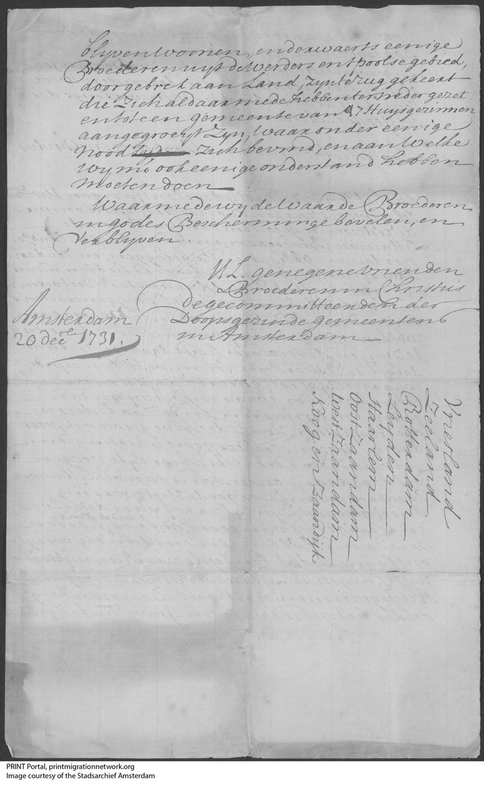 blyven woonen, en derwaerts eenige
Broederen uyt de Werders en t poolse gebied,
door gebrek aan Land, zyn te zug gekeert
die Zich aldaar mede hebben ter neder gezet
en tot een gemeente van 47 Huysgezinnen
aangegroeyt Zyn, waar onder eenige
nood Zich bevind, en aan Welke
wy mé ook eenige onderstand hebben
moeten doen
Waarmede wy de Waarde Broederen
in godes Bescherminge bevelen, en
verblyven
UL. genegene Vrienden
& Broederen in Christus
de gecommitteerdens der
Doopsgezinde Gemeentens
in Amsterdam
Amsterdam
20 dec 1731.
Vriesland
Zeeland
Rotterdam
Leyden
Haarlem
Oost Zaandam
West Zaandam
Koog en Zaandyk
PRINT Portal, printmigrationnetwork.org
Image courtesy of the Stadsarchief Amsterdam